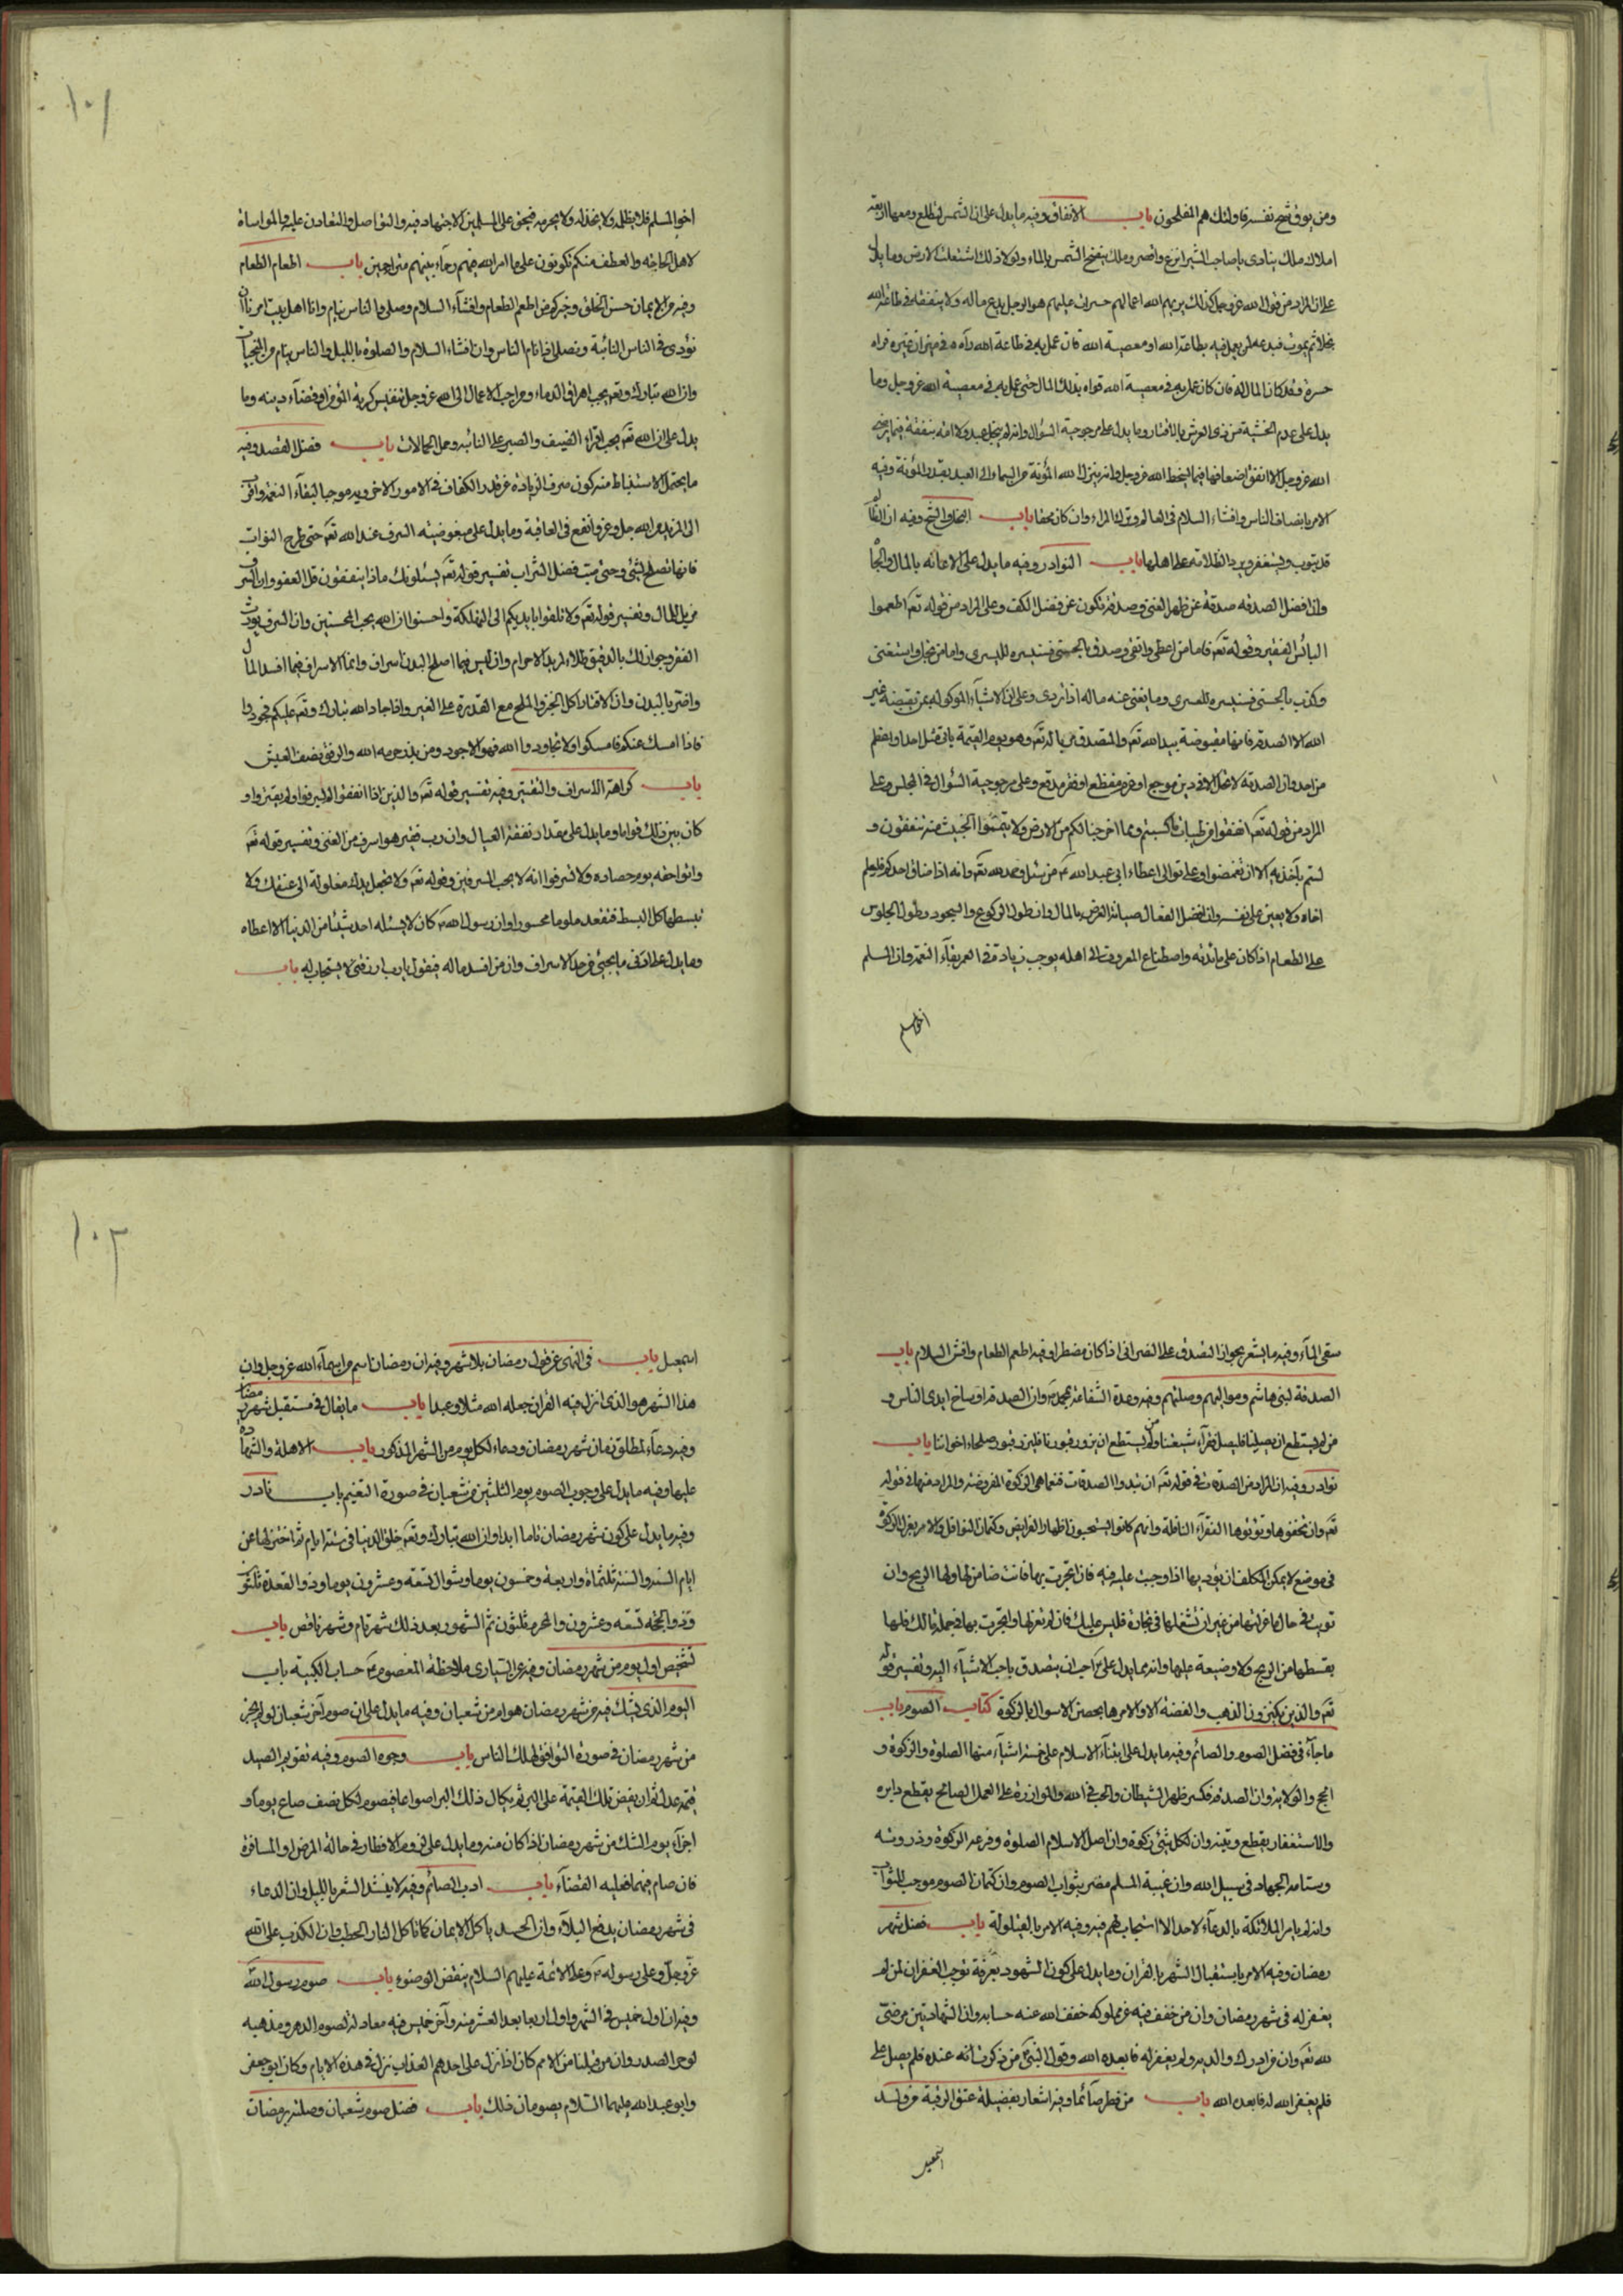 ومن يوق شح نفسه فاولئك هم المفلحون باب الانفاق وفيه ما يدل على ان الشمس لتطلع ومعها اربعة
املاك ملك ينادى يا صاحب الشر انزع واقصر وملك ينضح الشمس بالماء ولولا ذلك اشتعلت الارض وما يدل
على ان المراد من قول الله عز وجل كذلك يريهم الله اعمالهم حسرات عليهم هو الرجل يدع ماله ولا ينفقه فى طاعة الله
بخلا ثم يموت فيدعه لمن يعمل فيه بطاعة الله او معصية الله فان عمل به فى طاعة الله رآه فى ميزان غيره فراه
حسرة وقد كان المال له فان كان عمل به فى معصية الله قواه بذلك المال حتى عمل به فى معصية الله عز وجل وما
الله عز وجل الا انفق اضعافها فيما يسخط الله عز وجل وانه ينزل الله المؤنة من السماء الى العبد بقدر المؤنة وفيه
الامر بانصاف الناس وافشاء السلام فى العالم وترك المراء وان كان محقا باب البخل والشح وفيه ان الظا
قد يتوب ويستغفر ويرد الظلامة على اهلها باب النوادر وفيه ما يدل على الاعانه بالمال والجا
وان افضل الصدقه صدقة عن ظهر الغنى وصدقة تكون عن فضل الكف وعلى المراد من قوله تعـ اطعموا
البائس الفقير وقوله تعـ فاما من اعطى واتقى وصدق بالحسنى فسنيسره لليسرى واما من بخل واستغنى
وكذب بالحسنى فسنيسره للعسرى وما يغنى عنه ماله اذا تردى وعلى ان الاشياء الموكوله بمن يقبضه غير
الله الا الصدقه فانها مقبوضة بيد الله تعـ
من احد وان الصدقة لا تحل الا فى دين موجع او غرم مفظع او فقر مدقع وعلى مرجوحية السؤال فى المجلس وعلى
المراد من قوله تعـ انفقوا من طيبات ما كسبتم ومما اخرجنا لكم من الارض ولا تيمموا الخبيث منه تنفقون و
لستم بآخذيه الا ان تغمضوا
اخاه ولا يعين على نفسه وان افضل الفعال صيانة العرض بالمال وان طول الركوع والسجود وطول الجلوس
على الطعام اذا كان على مائدته واصطناع المعروف الى اهله يوجب زيادة فى العمر بقاء النعمة وان المسلم
اخو المسلم
١٠١
اخو المسلم فلا يظلمه ولا يخذله ولا يحرمه فيحق على المسلمين الاجتهاد فيه والتواصل والتعاون عليه والمواساة
لاهل الحاجه والعطف منكم تكونون على ما امر الله فيهم رحماء بينهم متراحمين باب اطعام الطعام
وفيه من الايمان حسن الخلق وخيركم من اطعم الطعام وافشاء السلام وصلى والناس نيام وانا اهل بيت امرنا ان
نؤدى فى الناس النائبة ونصلى اذا نام الناس وان افشاء السلام والصلوة بالليل والناس نيام من المنجيات
وان الله تبارك وتعـ يحب اهراق الدماء ومن احب الاعمال الى الله عز وجل تنفيس كربة المؤمن او قضاء دينه وما
يدل على ان الله تعـ يحب اقراء الضيف والصبر على النائبه وحمل الحمالات باب فضل القصد وفيه
فانها تصلح لشئ وحتى صب فضل الشراب تفسير قوله تعـ يسئلونك ماذا ينفقون قل العفو وان السرف
مزيل المال وتفسير قوله تعـ ولا تلقوا بايديكم الى التهلكة واحسنوا ان الله يحب المحسنين وان السرف يورث
الفقر وجواز ذلك بالدقيق طلاء لمريد الاحرام وان ليس فيما اصلح البدن اسراف وانما الاسراف فيما افسد المال
واضر بالبدن وان الاقتار اكل الخبز والملح مع القدرة على الغير واذا جاد الله تبارك وتعـ عليكم فجودوا
فاذا امسك عنكم فامسكوا ولا تجاودوا الله فهو الاجود ومن بذر حرمه الله والرفق نصف العيش
باب كراهة الاسراف والتقتير وفيه تفسير قوله تعـ والذين اذا انفقوا لم يسرفوا ولم يقتروا و
كان بين ذلك قواما وما يدل على مقدار نفقة العيال وان رب فقير هو اسرف من الغنى وتفسير قوله تعـ
واتوا حقه يوم حصاده ولا تسرفوا انه لا يحب المسرفين وقوله تعـ ولا تجعل يدك مغلولة الى عنقك ولا
تبسطها كل البسط فتقعد ملوما محسورا وان رسول الله كان لا يسئله احد شيئا من الدنيا الا اعطاه
وما يدل على ادنى ما يجئ من حد الاسراف وان من افسد ماله فيقول يا رب ارزقنى لا يستجاب له باب
سقى الماء وفيه ما يشعر بجواز التصدق على النصرانى اذا كان مضطرا وفيه اطعم الطعام وافش السلام باب
الصدقة لبنى هاشم ومواليهم وصلتهم وفيه وعدة الشفاعة وان الصدقة اوساخ ايدى الناس و
من لم يستطع ان يصلنا فليصل فقراء شيعتنا ومن لم يستطع ان يزور قبورنا فليزر قبور صلحاء اخواننا باب
نوادر وفيه ان المراد من الصدقات فى قوله تعـ ان تبدوا الصدقات فنعما هى الزكوة المفروضه والمراد منها فى قوله
تعـ وان تخفوها وتؤتوها الفقراء النافلة وانهم كانوا يستحبون اظهار الفرايض وكتمان النوافل والامر بعزل الزكوة
فى موضع لا يمكن المكلف ان يؤديها اذا وجبت عليه فيه فان اتجرت بها فانت ضامن لها ولها الربح وان
تويت فى حال ما عزلتها من غير ان تشغلها فى تجارة فليس عليك فان لم تعزلها واتجرت بها فى جملة مالك فلها
بقسطها من الربح ولا وضيعة عليها وانه ما يدل على احب ان يتصدق باحب الاشياء اليه وتفسير قوله
تعـ والذين يكنزون الذهب والفضة الا والامر بحصن الاموال بالزكوة كتاب الصوم باب
ما جاء فى فضل الصوم والصائم وفيه ما يدل على ابتناء الاسلام على خمسة اشياء منها الصلوة والزكوة و
الحج والولاية وان الصدقة تكسر ظهر الشيطان والحب فى الله والموازرة على العمل الصالح يقطع دابره
والاستغفار يقطع وتينه وان لكل شئ زكوة وان اصل الاسلام الصلوة وفرعه الزكوة وذروته
وسنامه الجهاد فى سبيل الله وان غيبة المسلم مضر بثواب الصوم وان كتمان الصوم موجب للثواب
وانه لم يامر الملائكة بالدعاء لاحد الا استجاب لهم فيه وفيه الامر بالقيلولة باب فضل شهر
رمضان وفيه الامر باستقبال الشهر بالقران وما يدل على كون الشهود بعرفة توجب الغفران لمن لم
يغفر له فى شهر رمضان وان من خفف فيه عن مملوكه خفف الله عنه حسابه وان الشهادتين مرضى
لله تعـ وان من ادرك والديه ولم يغفر له فابعده الله وقول النبى من ذكرت عنده فلم يصل على
فلم يغفر الله له فابعده الله باب من فطر صائما وفيه اشعار بفضيلة عتق الرقبة من ولد
اسمعيل
١٠٢
اسمعيل باب فى النهى عن قول رمضان بلا شهر وفيه ان رمضان اسم من اسماء الله عز وجل وان
هذا الشهر هو الذى انزل فيه القران جعله الله مثلا وعيدا باب ما يقال فى مستقبل شهر رمضان
وفيه دعاء لمطلق زمان شهر رمضان ودعاء لكل يوم من الشهر المذكور باب الاهلة والشهادة
عليها وفيه ما يدل على وجوب الصوم يوم الثلثين من شعبان فى صورة التغيم باب نادر
وفيه ما يدل على كون شهر رمضان تاما ابدا وان الله تبارك وتعـ خلق الدنيا فى ستة ايام ثم اختزلها عن
ايام السنه والسنة ثلثماة واربعة وخمسون يوما وشوال تسعه وعشرون يوما وذو القعدة ثلثون
وذو الحجه تسعه وعشرون والمحرم ثلثون ثم الشهور بعد ذلك شهر تام وشهر ناقص باب
تشخيص اول يوم من شهر رمضان وفيه عن السيارى ملاحظة المعصوم حساب الكبيسة باب
اليوم الذى يشك فيه من شهر رمضان هو ام من شعبان وفيه ما يدل على ان صوم آخر شعبان لو لم يجز
من شهر رمضان فى صورة التوافق لهلك الناس باب وجوه الصوم وفيه تقويم الصيد
قيمة عدل ثم ان يفض تلك القيمة على البر ثم يكال ذلك البر اصواعا فيصوم لكل نصف صاع يوما و
اجزاء يوم الشك من شهر رمضان اذا كان منه وما يدل على لزوم الافطار فى حالة المرض او المسافرة
فان صام فيهما فعليه القضاء باب ادب الصائم وفيه لا ينشد الشعر بالليل وان الدعاء
فى شهر رمضان يدفع البلاء وان الحسد ياكل الايمان كما تاكل النار الحطب وان الكذب على الله
عز وجل وعلى رسوله وعلى الائمة عليهم السلام ينقض الوضوء باب صوم رسول الله
وفيه ان اول خميس فى الشهر واول اربعا بعد العشر منه وآخر خميس فيه معادلة لصوم الدهر ومذهبة
لوحر الصدر وان من قبلنا من الامم كان اذا نزل على احدهم العذاب نزل فى هذه الايام وكان ابو جعفر
وابو عبد الله عليهما السلام يصومان ذلك باب فضل صوم شعبان وصلته برمضان